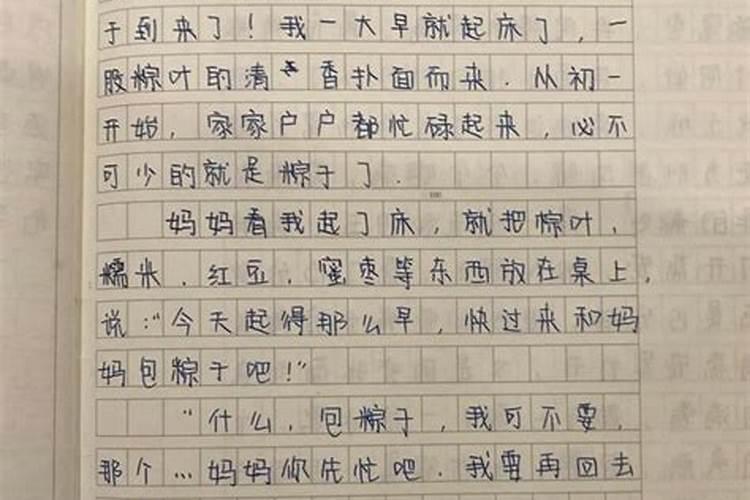 于到来了！我一大早就起床了，一
股粽叶的清香扑面而来．从初一
开始，家家户户都忙碌起来，必不
可少的就是粽子了．
妈妈看我起了床，就把粽叶，
糯米．红豆．蜜枣等东西放在桌上，
说：“今天起得那么早，快过来和妈
妈包粽子吧！”
“什么，包粽子，我可不要，
那个…妈妈你先忙吧．我要再回去